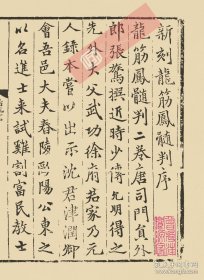 新刻龍筋鳳髓判序
龍筋鳳髓判二卷唐司門員外
郎張鷟撰近時少傳允明得之
先外大父武功徐府君家乃元
人錄本嘗以出示沈君津潤卿
會吾邑大夫舂陵歐陽公東之
以名進士來試雞割富民教士